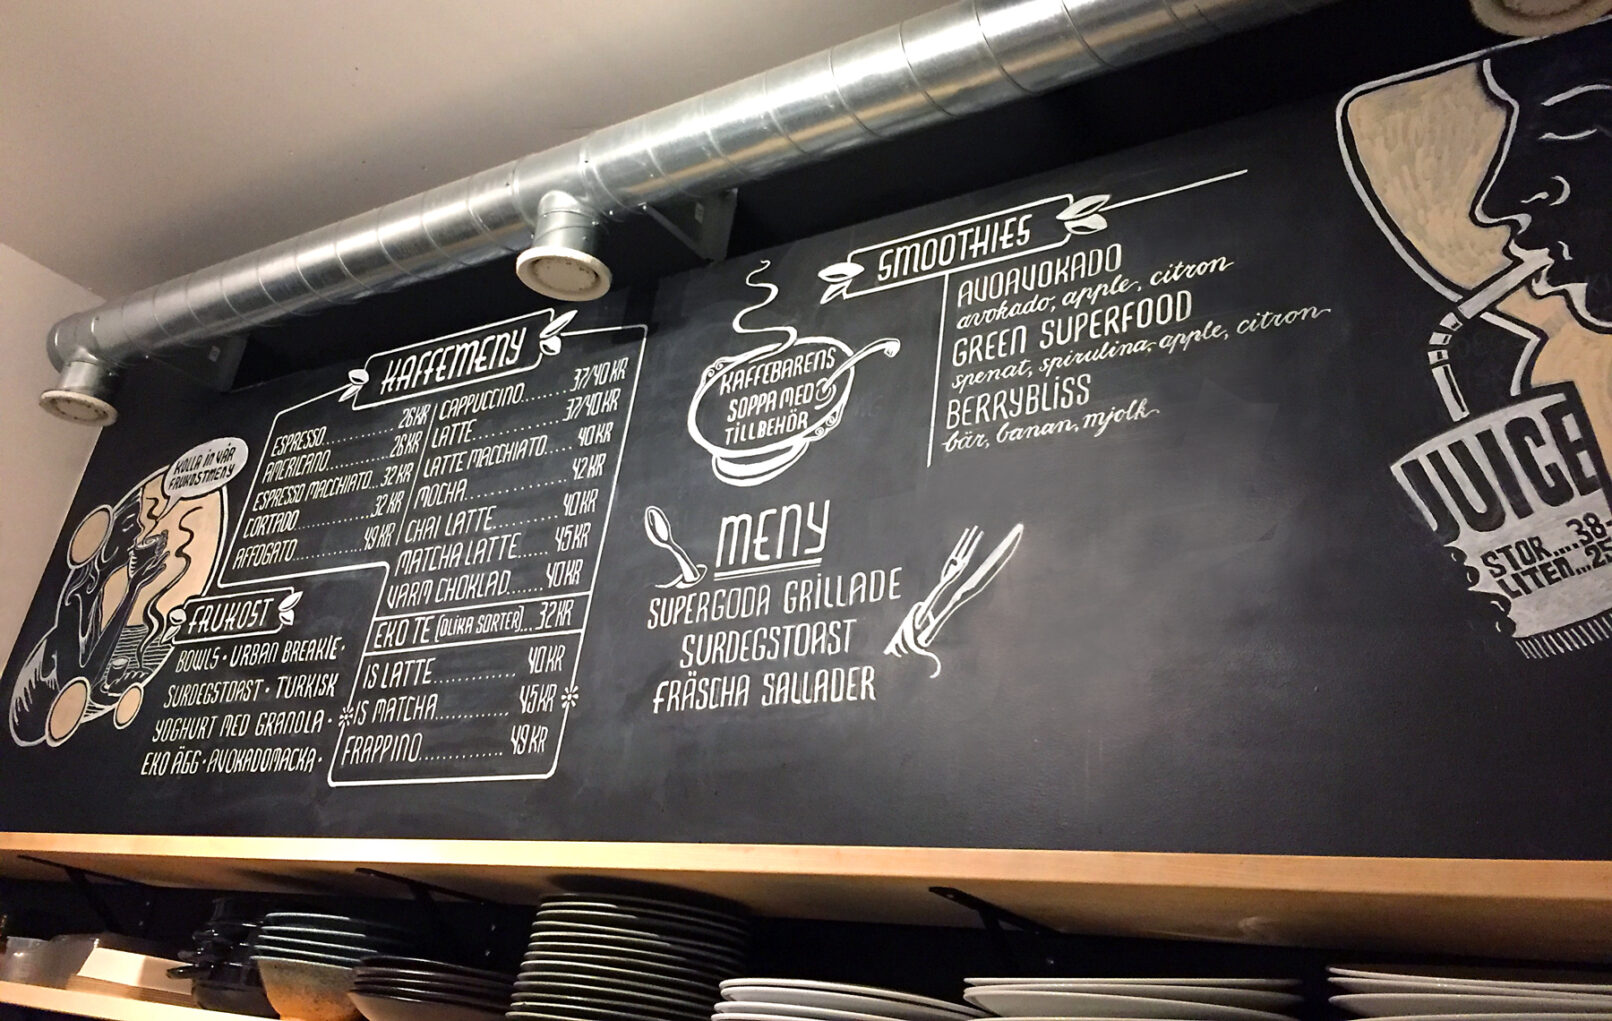 KOLLA IN VÅR
FRUKOSTMENY
KAFFEMENY
ESPRESSO............26 KR
AMERICANO..........26 KR
ESPRESSO MACCHIATO...32 KR
CORTADO............32 KR
AFFOGATO...........49 KR
CAPPUCCINO.......37/40 KR
LATTE............37/40 KR
LATTE MACCHIATO.....40 KR
MOCHA..............42 KR
CHAI LATTE..........40 KR
MATCHA LATTE......45 KR
VARM CHOKLAD.....40 KR
EKO TE (OLIKA SORTER)...32 KR
IS LATTE............40 KR
IS MATCHA...........45 KR
FRAPPINO............49 KR
FRUKOST
BOWLS · URBAN BREAKIE ·
SURDEGSTOAST · TURKISK
YOGHURT MED GRANOLA ·
EKO ÄGG · AVOKADOMACKA ·
KAFFEBARENS
SOPPA MED
TILLBEHÖR
MENY
SUPERGODA GRILLADE
SURDEGSTOAST
FRÄSCHA SALLADER
SMOOTHIES
AVOAVOKADO
avokado, apple, citron
GREEN SUPERFOOD
spenat, spirulina, apple, citron
BERRYBLISS
bär, banan, mjolk
JUICE
STOR....38-
LITEN...25